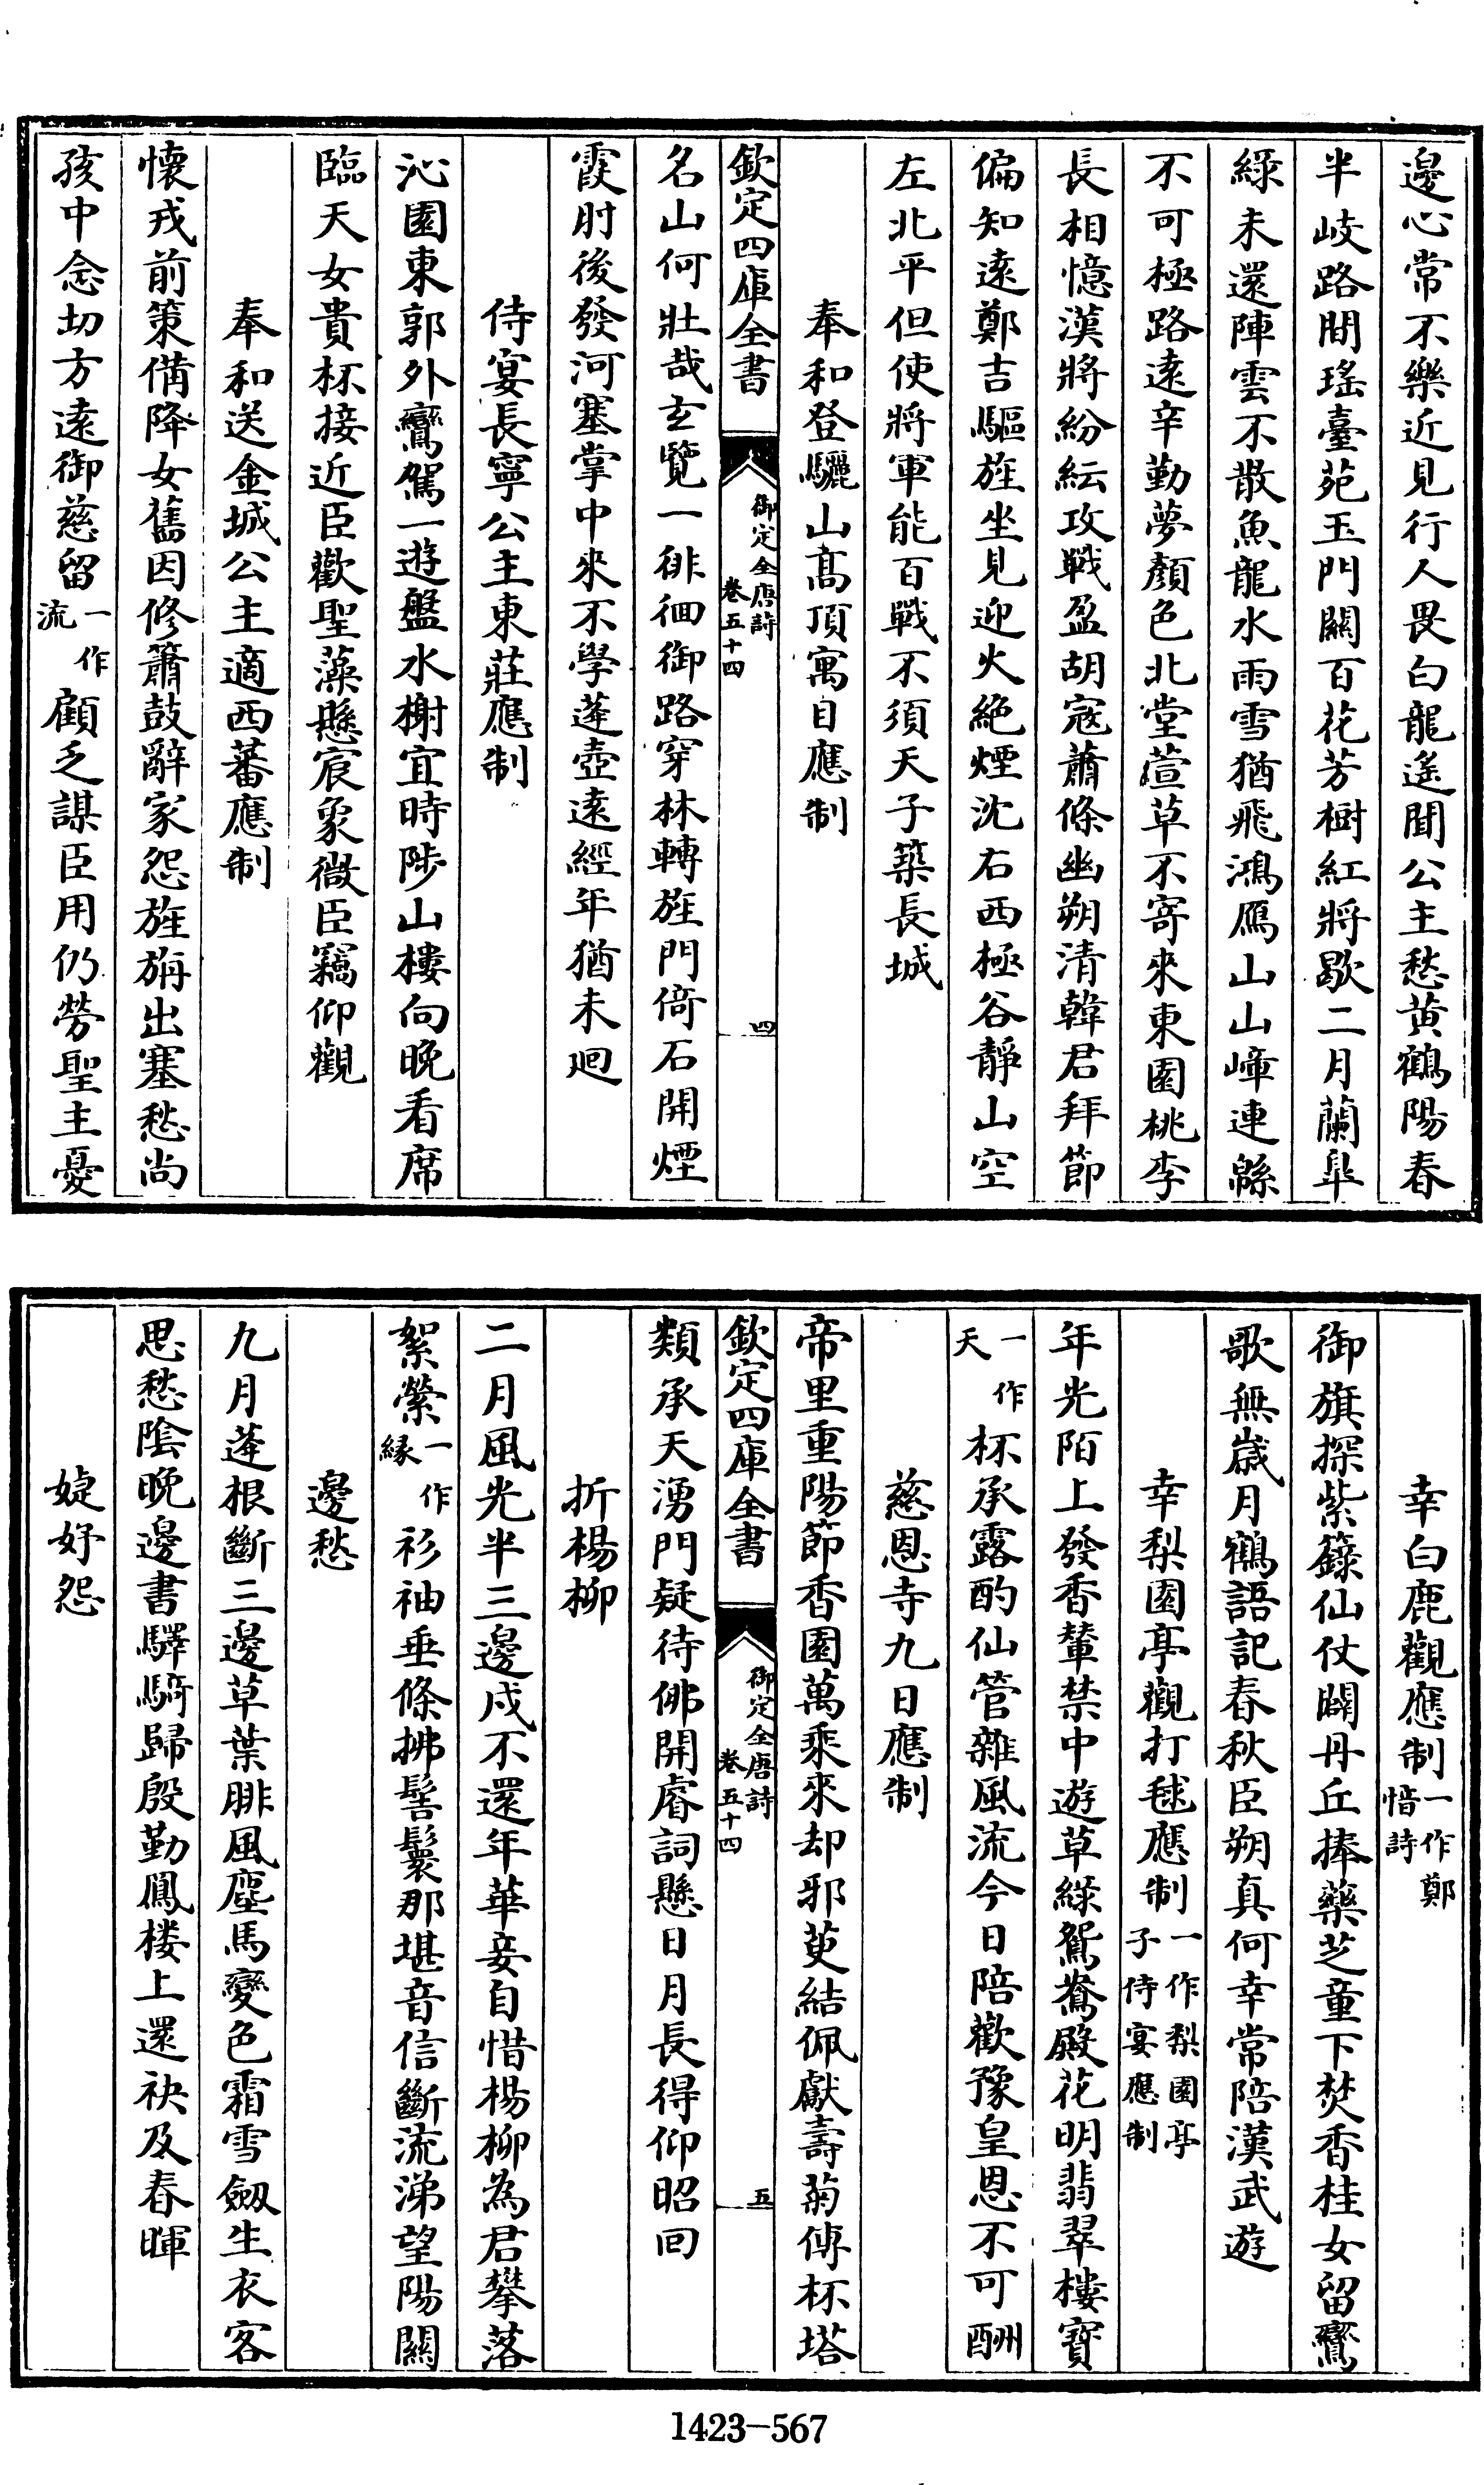 邊心常不樂近見行人畏白龍遙聞公主愁黄鶴陽春
半岐路間瑤臺苑玉門關百花芳樹紅將歇二月蘭臯
綠未還陣雲不散魚龍水雨雪猶飛鴻鴈山山嶂連緜
不可極路遠辛勤夢顏色北堂萱草不寄來東園桃李
長相憶漢將紛紜攻戰盈胡寇蕭條幽朔清韓君拜節
偏知遠鄭吉驅旌坐見迎火絶煙沈右西極谷靜山空
左北平但使將軍能百戰不須天子築長城
奉和登驪山高頂寓目應制
欽定四庫全書
御定全唐詩
卷五十四
四
名山何壯哉玄覽一徘徊御路穿林轉旌門倚石開煙
霞肘後發河塞掌中來不學蓬壺遠經年猶未迴
侍宴長寧公主東莊應制
沁園東郭外鸞駕一遊盤水榭宜時陟山樓向晚看席
臨天女貴杯接近臣歡聖藻懸宸象微臣竊仰觀
奉和送金城公主適西蕃應制
懷戎前策備降女舊因修簫鼓辭家怨旌旃出塞愁尚
孩中念切方遠御慈留一作流顧乏謀臣用仍勞聖主憂
幸白鹿觀應制一作鄭愔詩
御旗探紫籙仙仗闢丹丘捧藥芝童下焚香桂女留鸞
歌無歲月鶴語記春秋臣朔真何幸常陪漢武遊
幸梨園亭觀打毬應制一作梨園亭子侍宴應制
年光陌上發香輦禁中遊草綠鴛鴦殿花明翡翠樓寶
一作天杯承露酌仙管雜風流今日陪歡豫皇恩不可酬
慈恩寺九日應制
帝里重陽節香園萬乘來却邪萸結佩獻壽菊傳杯塔
欽定四庫全書
御定全唐詩
卷五十四
五
類承天湧門疑待佛開睿詞懸日月長得仰昭回
折楊柳
二月風光半三邊戍不還年華妾自惜楊柳為君攀落
絮縈一作緣衫袖垂條拂髻鬟那堪音信斷流涕望陽關
邊愁
九月蓬根斷三邊草葉腓風塵馬變色霜雪劒生衣客
思愁陰晚邊書驛騎歸殷勤鳳樓上還袂及春暉
婕妤怨
1423-567